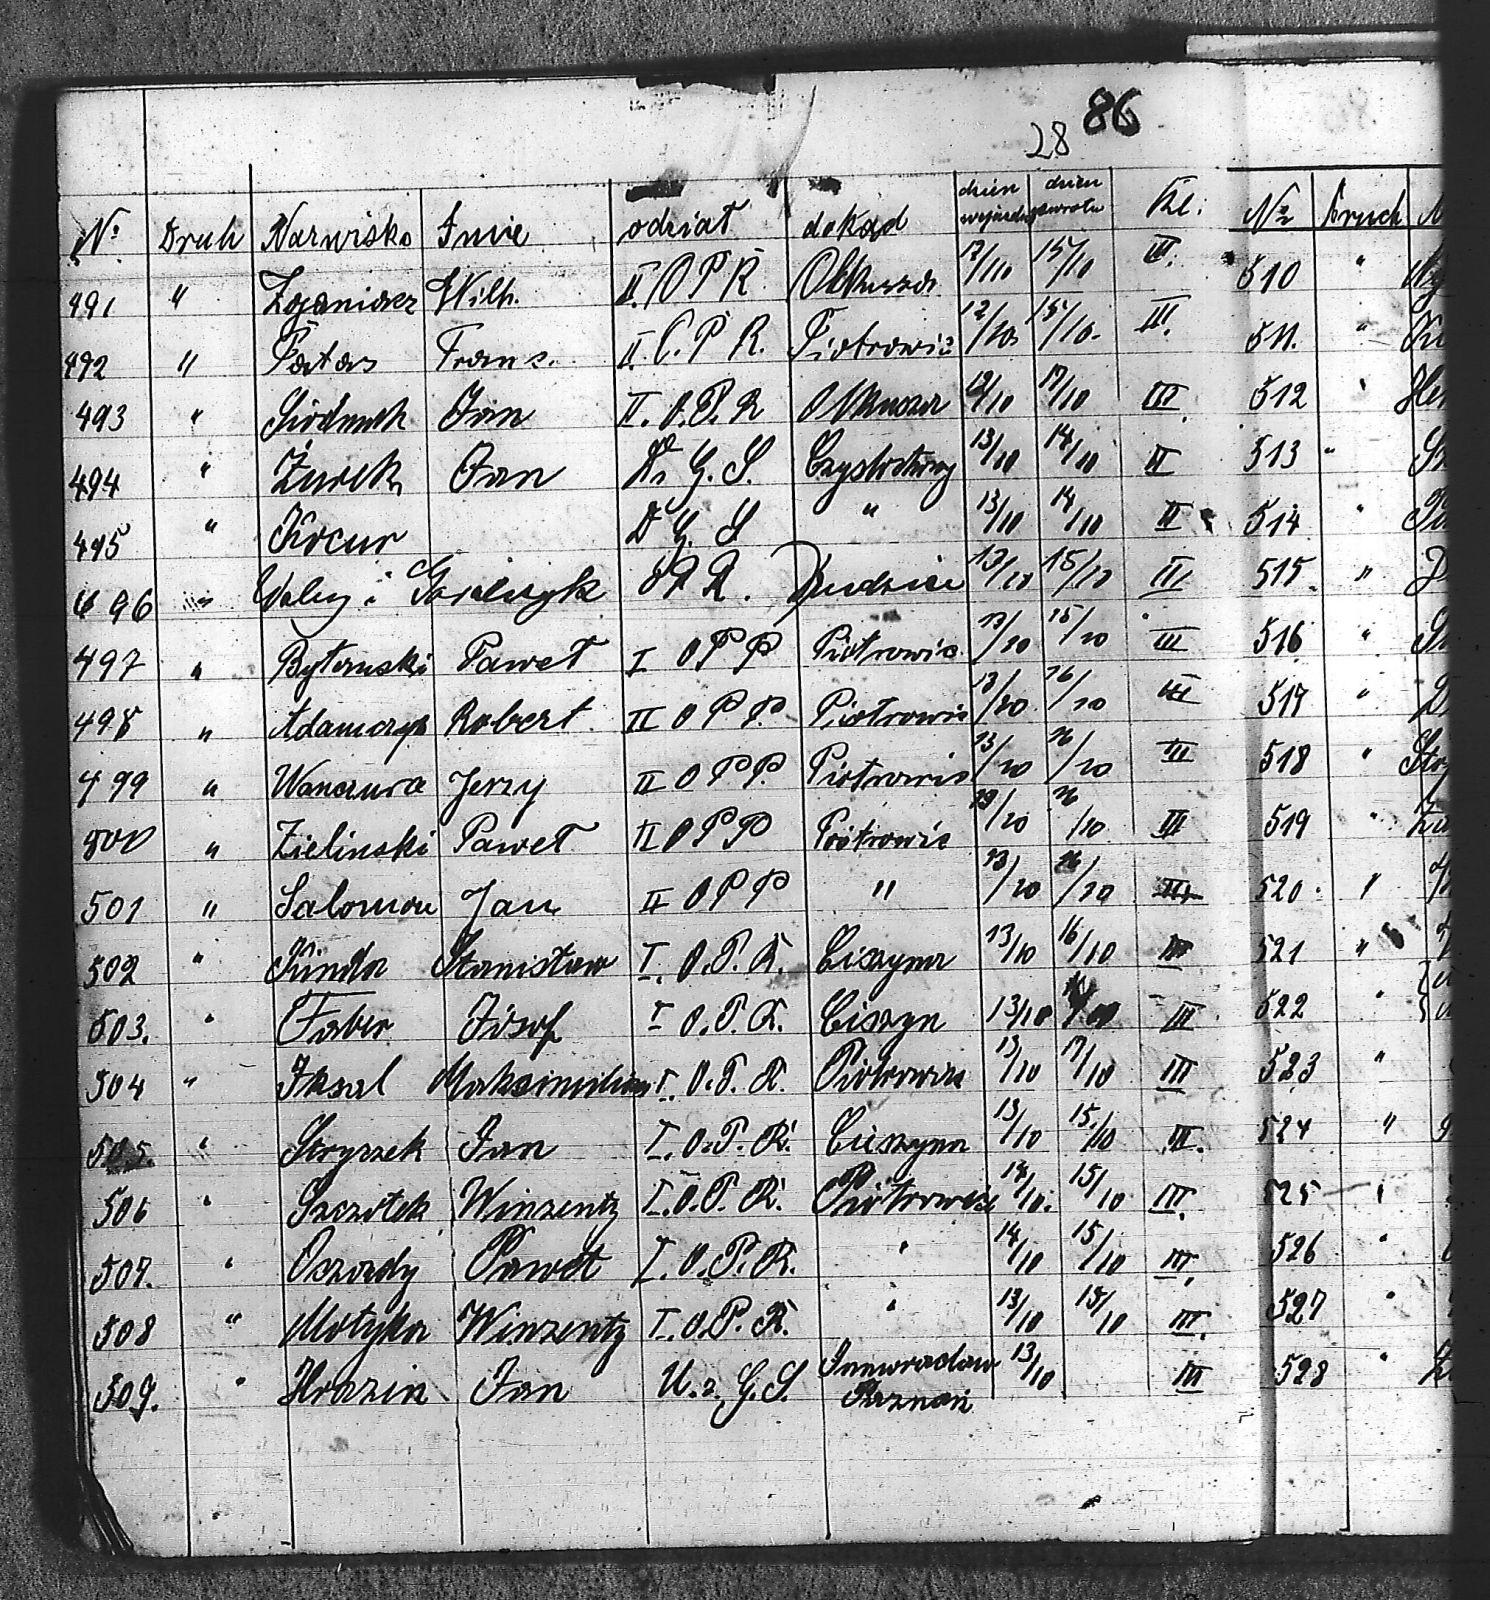 28 86
№ Druh Nazwisko Imie odział dokąd dzien wyjazdu dzien powrotu Kl:
491 " Wilh. II. O P R 12/10 15/10 III.
492 " Patas Franc. II. O. P. R. Piotrowic 12/10 15/10. III.
493 " Jan II. O. P. R Olkusza 12/10 17/10 III.
494 " Żurek Jan D. G. S. 13/10 14/10 II
495 " Kocur D G S " 13/10 14/10 II
496 " i O P R. 13/10 15/10 III
497 " Bytomski Paweł I O P P Piotrowic 13/10 15/10 III
498 " Adamczyk Robert II O P P. Piotrowic 13/10 16/10 III
499 " Wanczura Jerzy II O P P. Piotrowic 13/10 16/10 III
500 " Zielinski Paweł II O P P Piotrowic 13/10 16/10 III
501 " Salomon Jan II O P P " 13/10 16/10 III
502 " Stanisław I. O. P. R. Cieszyna 13/10 16/10 III
503. " Faber Józef I O. P. R. Cieszyn 13/10 III
504 " Maksimilian I. O. P. R. Piotrowice 13/10 17/10 III
505. " Jan I. O. P. R. Cieszyna 13/10 15/10 III.
506 " Szczotek Winzentz I. O. P. R. Piotrowice 14/10. 15/10 III.
507. " Paweł I. O. P. R. " 14/10 15/10 III.
508 " Motyka Winzentz I. O. P. R. " 13/10 15/10 III.
509. " Jan U. z. G. S. Inowracław 13/10 III
Poznań
№ Druch N
510 "
511. "
512 "
513 "
514 "
515 "
516 "
517 "
518 "
519 "
520 "
521 "
522 "
523 "
524 "
525 "
526 "
527 "
528 "